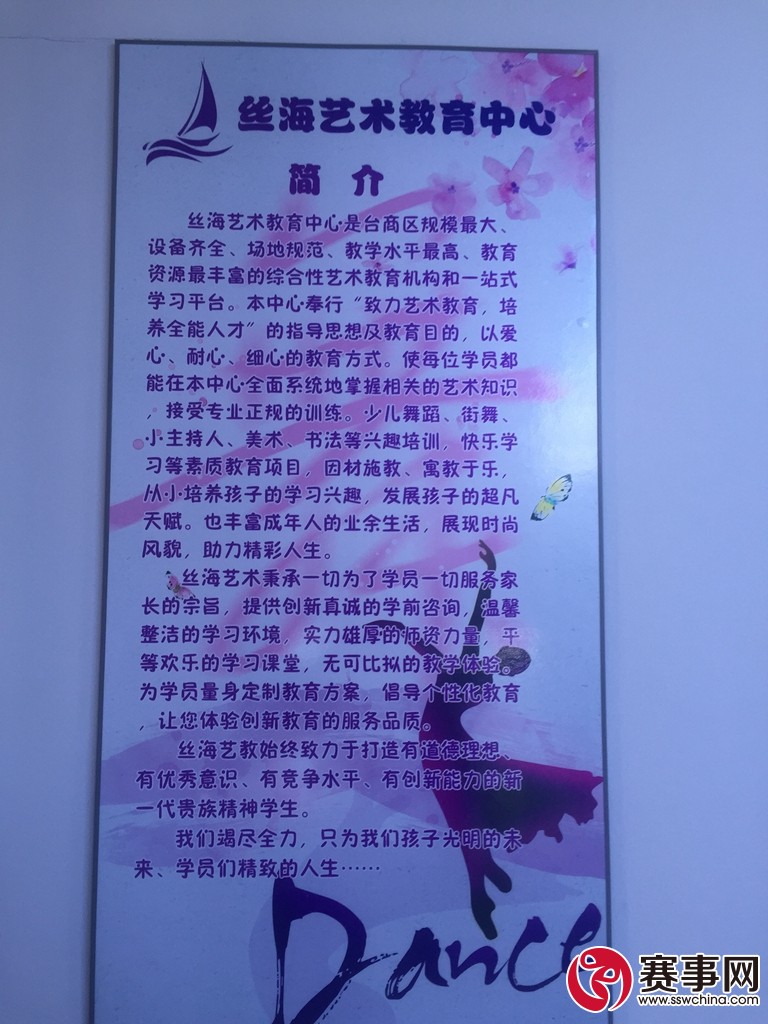 丝海艺术教育中心
简 介
丝海艺术教育中心是台商区规模最大、
设备齐全、场地规范、教学水平最高、教育
资源最丰富的综合性艺术教育机构和一站式
学习平台。本中心奉行“致力艺术教育，培
养全能人才”的指导思想及教育目的，以爱
心、耐心、细心的教育方式。使每位学员都
能在本中心全面系统地掌握相关的艺术知识
，接受专业正规的训练。少儿舞蹈、街舞、
小主持人、美术、书法等兴趣培训，快乐学
习等素质教育项目，因材施教、寓教于乐，
从小培养孩子的学习兴趣，发展孩子的超凡
天赋。也丰富成年人的业余生活，展现时尚
风貌，助力精彩人生。
丝海艺术秉承一切为了学员一切服务家
长的宗旨，提供创新真诚的学前咨询，温馨
整洁的学习环境，实力雄厚的师资力量，平
等欢乐的学习课堂，无可比拟的教学体验。
为学员量身定制教育方案，倡导个性化教育
，让您体验创新教育的服务品质。
丝海艺教始终致力于打造有道德理想、
有优秀意识、有竞争水平、有创新能力的新
一代贵族精神学生。
我们竭尽全力，只为我们孩子光明的未
来、学员们精致的人生……
Dance
赛事网
www.sswchina.com